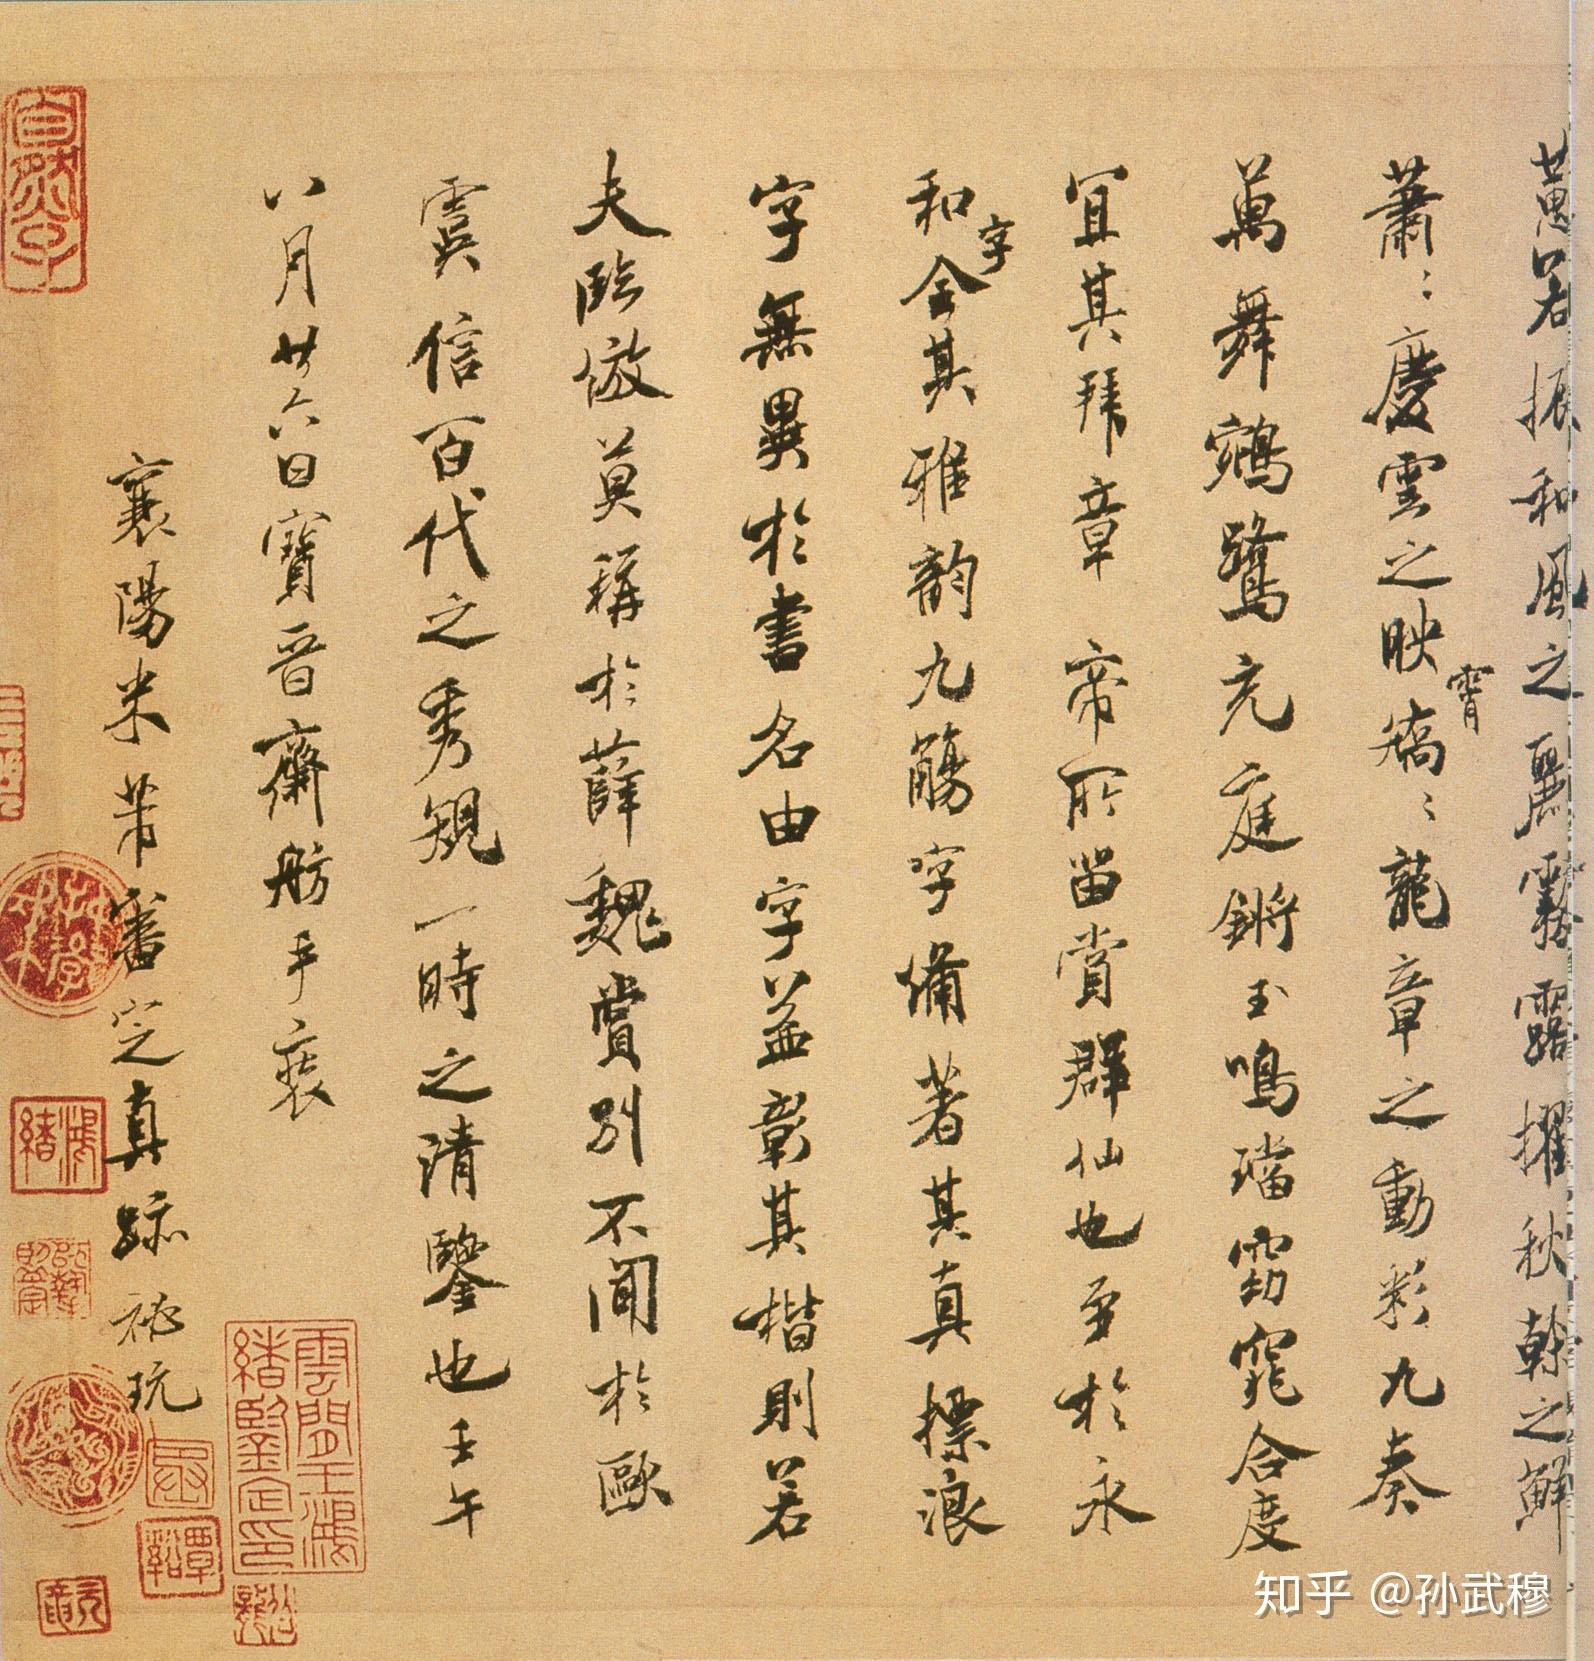 蕙若振和風之麗霧露擢秋榦之鮮
蕭〻慶雲之映霄矯〻龍章之動彩九奏
萬舞鵷鷺充庭鏘玉鳴璫窈窕合度
宜其拜章 帝所留賞群仙也至於永
和字全其雅韵九觴字備著其真標浪
字無異於書名由字益彰其楷則若
夫臨倣莫稱於薛魏賞别不聞於歐
虞信百代之秀規一時之清鑒也壬午
八月廿六日寶晉齋舫手裝
襄陽米芾審定真跡秘玩
自然子
雲間王鴻緒鑒定印
譚谿
知乎 @孙武穆